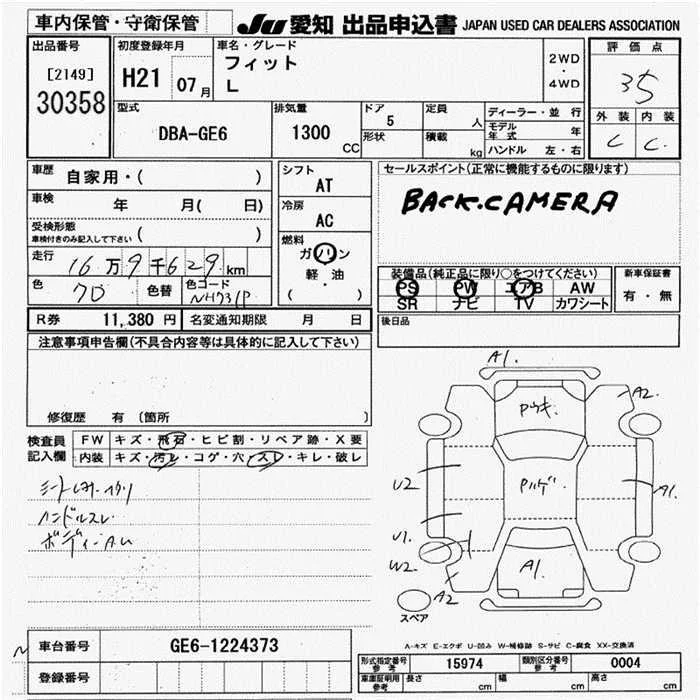 車内保管・守衛保管
JU 愛知 出品申込書 JAPAN USED CAR DEALERS ASSOCIATION
出品番号
[2149]
30358
初度登録年月
H21 07月
車名・グレード
フィット
L
2WD
・
4WD
評価点
3.5
外装 内装
C C
型式
DBA-GE6
排気量
1300 CC
ドア
5
形状
定員
人
積載
kg
ディーラー・並行
モデル年式 年
ハンドル 左・右
車歴 自家用・( )
車検 年 月( 日)
受検形態
車検付きのみ記入して下さい ( )
走行 16万9千629km
色 70 色替 色コード NH731P
シフト
AT
冷房
AC
燃料
ガソリン
軽・油
( )
セールスポイント(正常に機能するものに限ります)
BACK.CAMERA
装備品(純正品に限り○をつけてください)
PS PW エアB AW
SR ナビ TV カワシート
新車保証書
有・無
R券 11,380円 名変通知期限 月 日
後日品
注意事項申告欄(不具合内容等は具体的に記入して下さい)
修復歴 有(箇所
検査員記入欄
FW キズ・飛石・ヒビ割・リペア跡・X要
内装 キズ・汚レ・コゲ・穴・スレ・キレ・破レ
ハンドルスレ
ボディーAU
A1.
A2.
Pウキ
U2
Pハゲ.
A1.
U1.
W2.
A1.
A2
スペア
A-キズ E-エクボ U-凹み W-補修跡 S-サビ C-腐食 XX-交換済
車台番号 GE6-1224373
登録番号
形式指定番号 参考 15974 類別区分番号 参考 0004
車庫証明用 参考 長さ cm 幅 cm 高さ cm